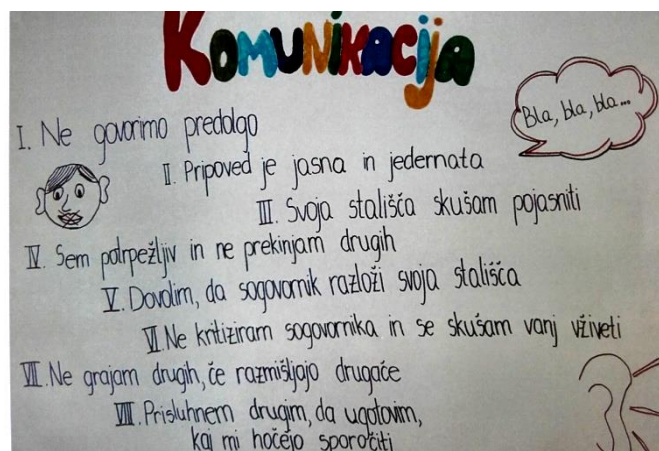 Komunikacija
Bla, bla, bla...
I. Ne govorimo predolgo
II. Pripoved je jasna in jedernata
III. Svoja stališča skušam pojasniti
IV. Sem potrpežljiv in ne prekinjam drugih
V. Dovolim, da sogovornik razloži svoja stališča
VI. Ne kritiziram sogovornika in se skušam vanj vživeti
VII. Ne grajam drugih, če razmišljajo drugače
VIII. Prisluhnem drugim, da ugotovim,
kaj mi hočejo sporočiti